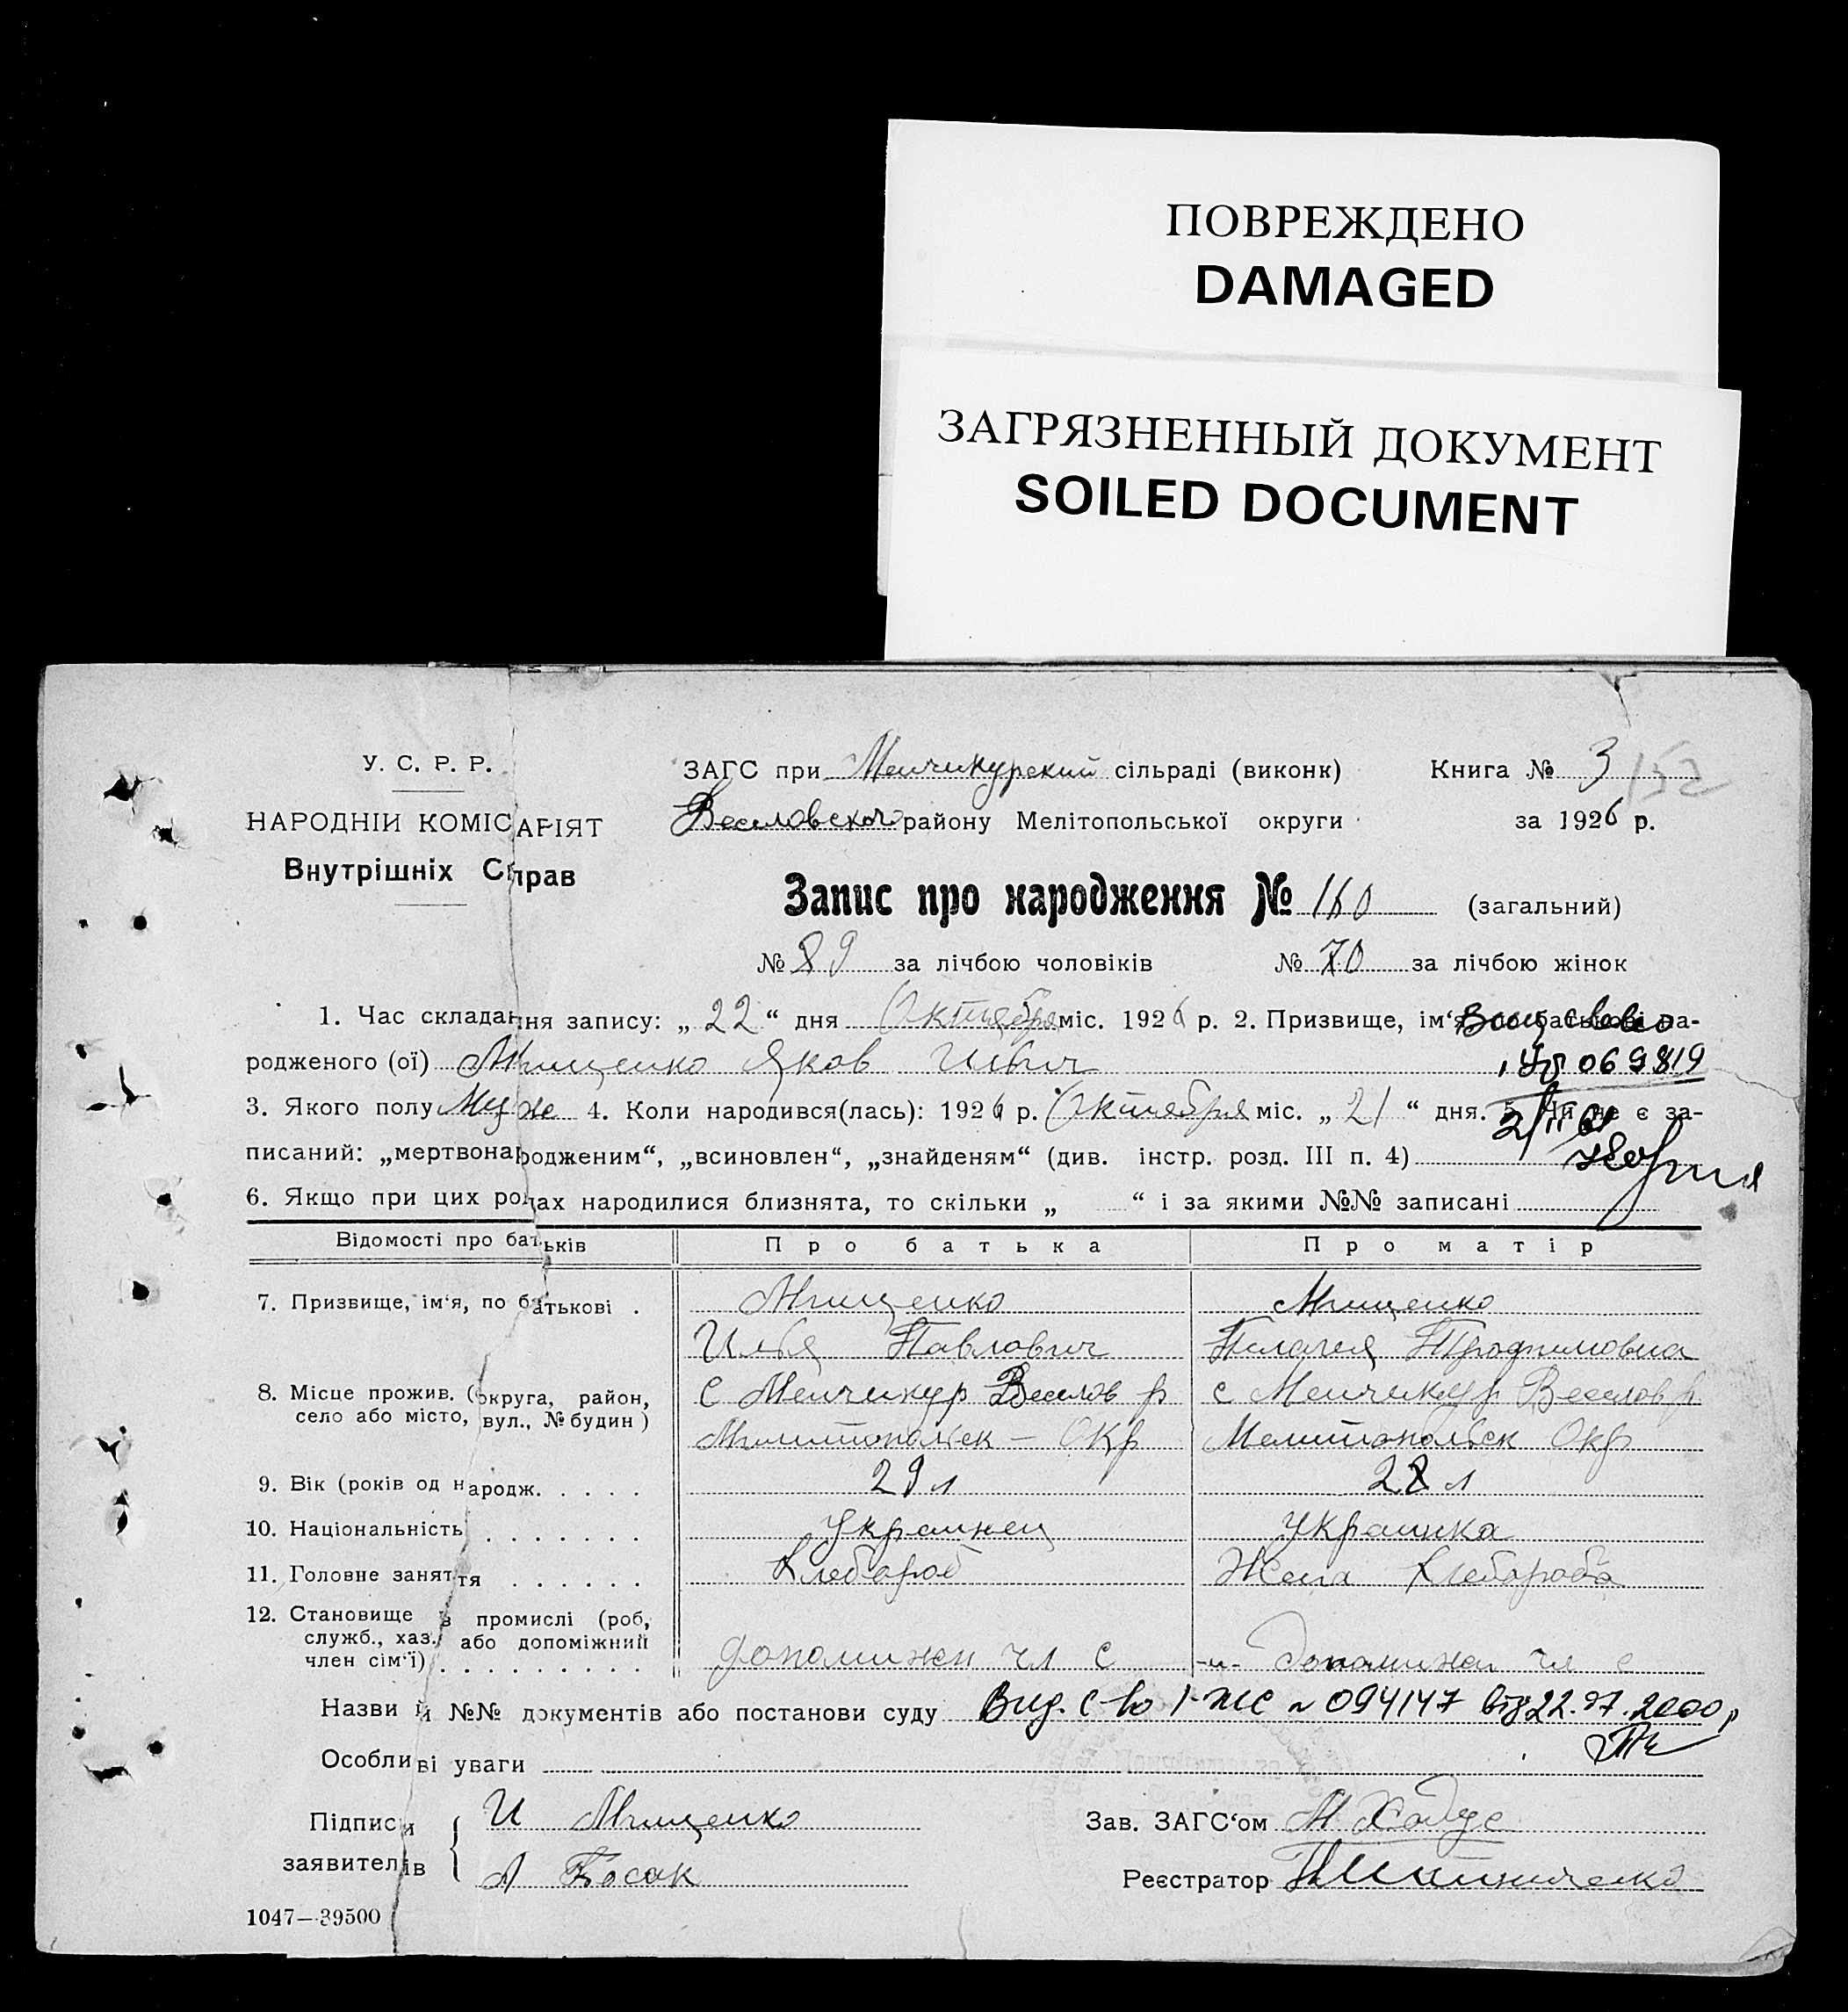 ПОВРЕЖДЕНО
DAMAGED
ЗАГРЯЗНЕННЫЙ ДОКУМЕНТ
SOILED DOCUMENT
У. С. Р. Р.
НАРОДНІЙ КОМІСАРІЯТ
Внутрішніх Справ
ЗАГС при Менчикурский сільраді (виконк) Книга № 3 152
Веселовского району Мелітопольської округи за 1926 р.
Запис про народження № 160 (загальний)
№ 89 за лічбою чоловіків № 70 за лічбою жінок
1. Час складання запису: „ 22 “ дня Октября міс. 1926 р. 2. Призвище, ім‘я, по батькові на-
родженого (ої) Мищенко Яков Ильич
069819
3. Якого полу Муж 4. Коли народився(лась): 1926 р. Октября міс. „ 21 “ дня. 5. Чи не є за-
писаний: „мертвонародженим“, „всиновлен“, „знайденям“ (див. інстр. розд. III п. 4)
6. Якщо при цих родах народилися близнята, то скільки „ “ і за якими №№ записані
Відомості про батьків Про батька Про матір
7. Призвище, ім‘я, по батькові . Мищенко Мищенко
Илья Павлович Пелагея Трофимовна
8. Місце прожив. (округа, район, С Менчикур Веселов р с Менчикур Веселов р
село або місто, вул., № будин)
Мелитопольск – Окр Мелитопольск Окр
9. Вік (років од народж. . . . . 29 л 28 л
10. Національність . . . . . . . Украинец Украинка
11. Головне заняття . . . . . . Хлебороб Жена Хлебороба
12. Становище в промислі (роб,
служб., хаз. або допоміжний
член сім‘ї) . . . . . . . . . допоминжн чл с -„- допоминжн чл с
Назви й №№ документів або постанови суду Вид. с-во І-ЖС № 094147 від 22.07.2000р
Особливі уваги
Підписи И Мищенко Зав. ЗАГС‘ом М. Ходус
заявителів А Босак Реєстратор
1047—39500